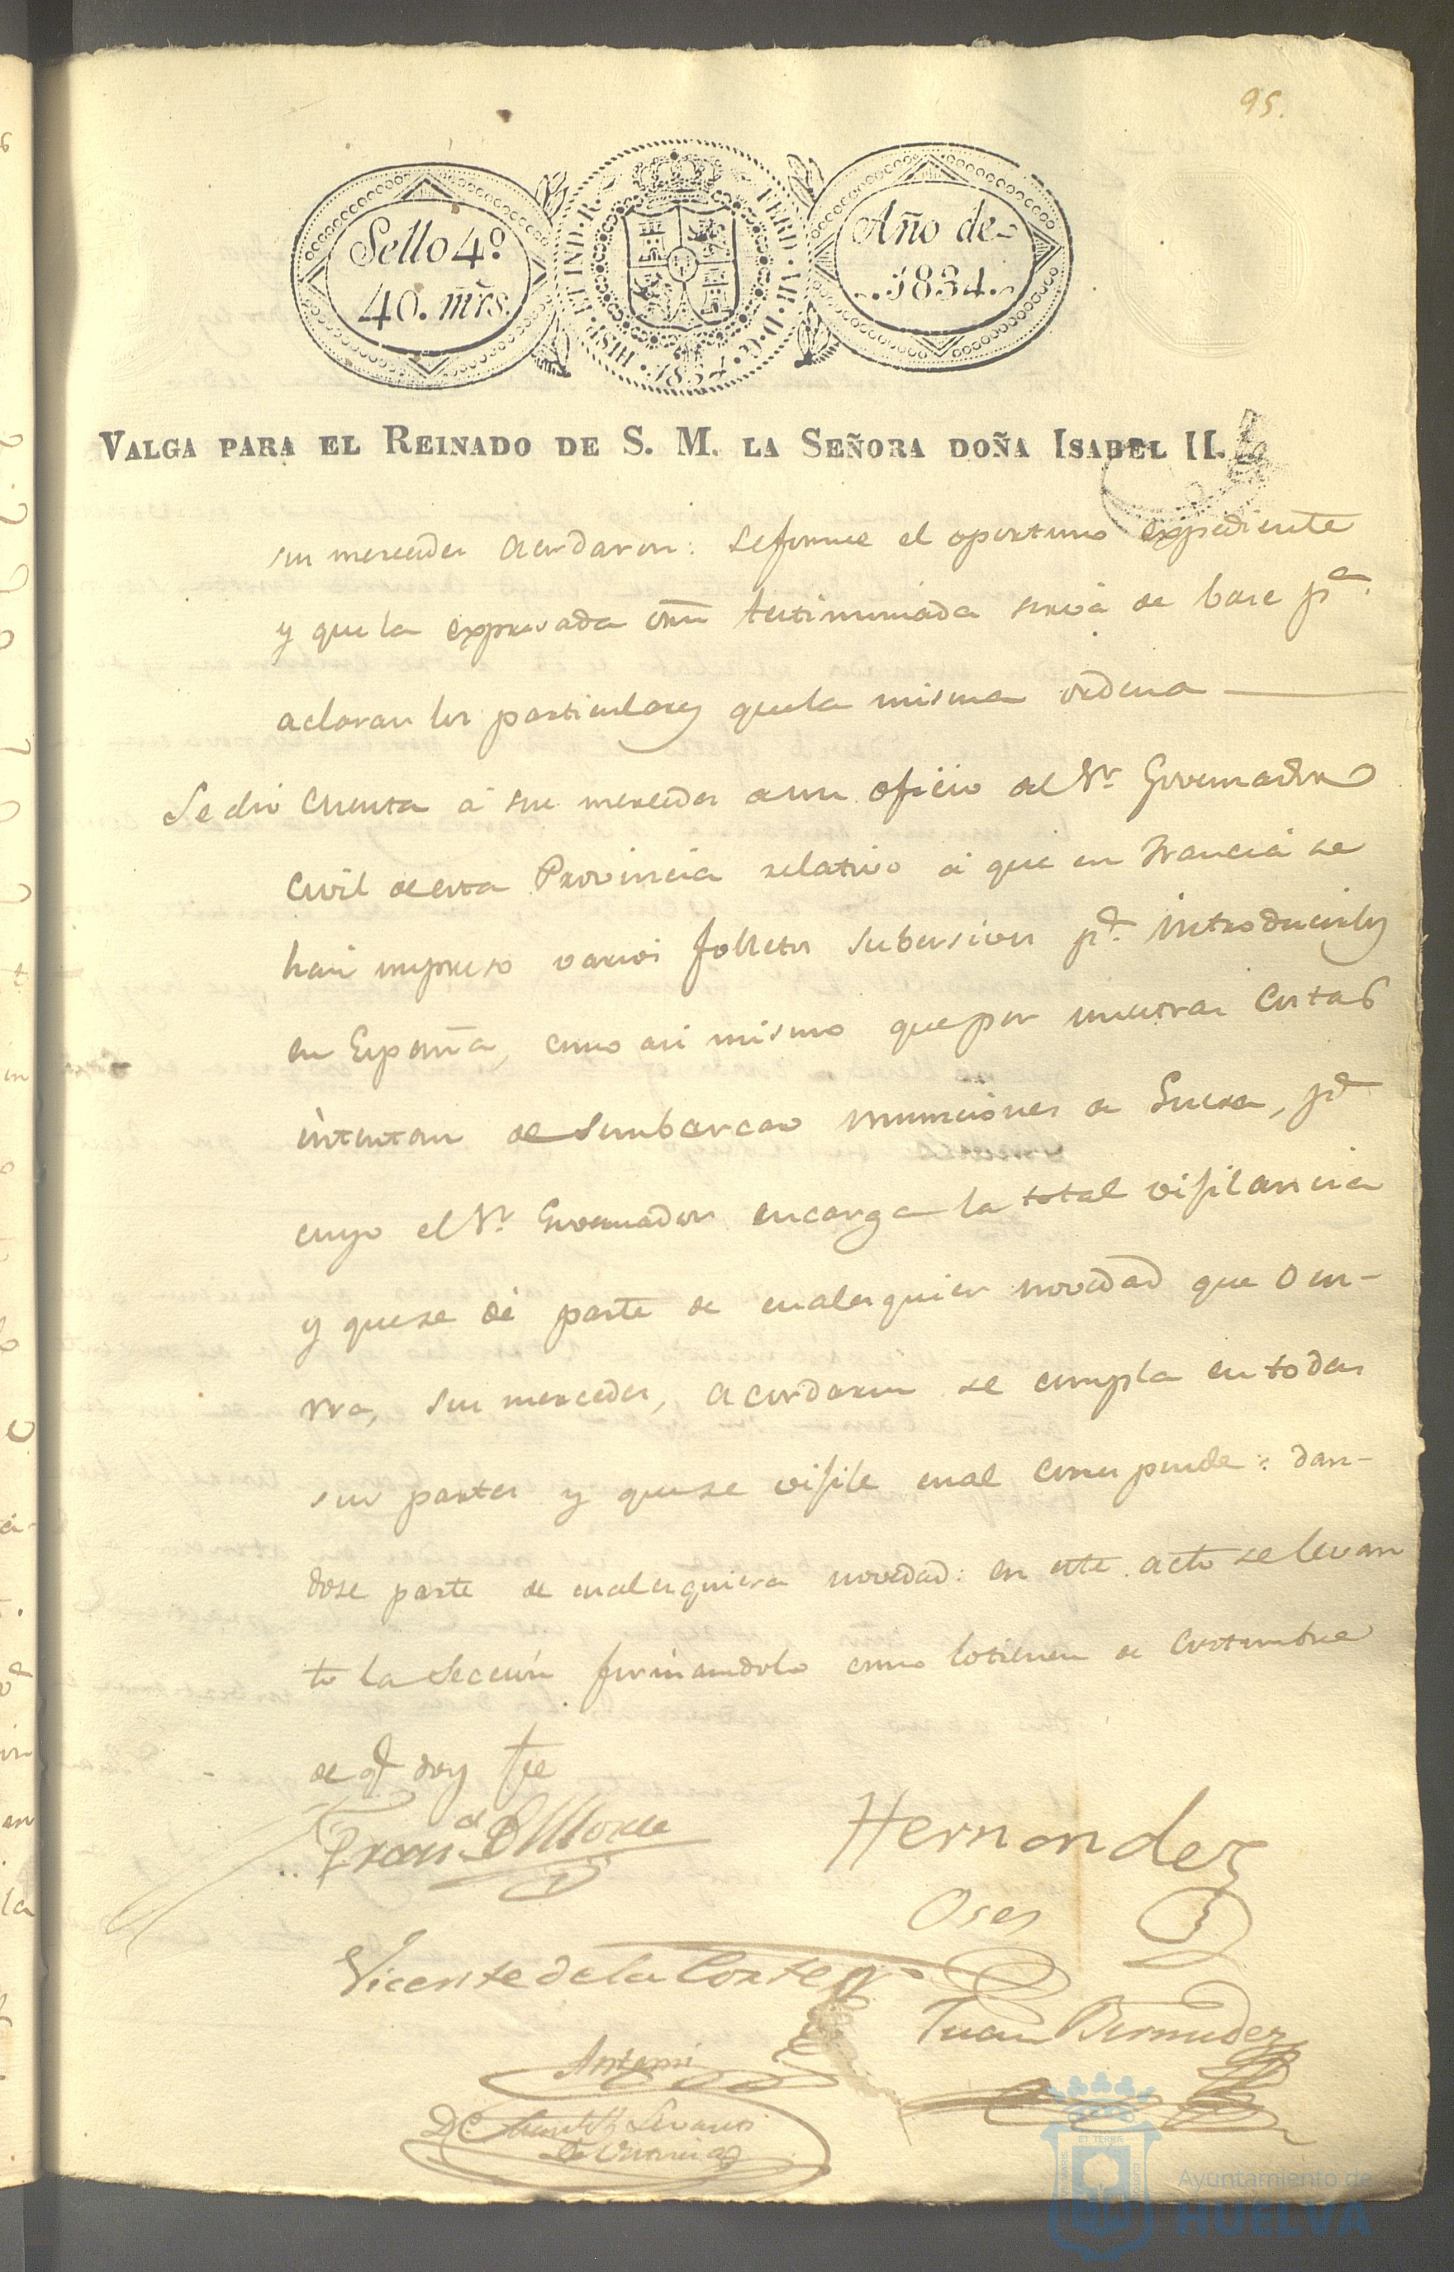 95.
Sello 4º
40. mr̃s.
HISP. ET IND. R.
FERD. VII. D. G.
1834.
Año de
1834.
VALGA PARA EL REINADO DE S. M. LA SEÑORA DOÑA ISABEL II.
sus mercedes acordaron: se forme el oportuno expediente
y que la expresada orn̄ testimoniada sirva de base pª
aclarar los particulares que la misma ordena
Se dio cuenta á sus mercedes de un oficio del Sr. Governador
Civil de esta Provincia relativo á que en Francia se
han impreso varios folletos subersivos pª introducirlos
en España, como asi mismo que por nuestras Costas
intentan desembarcar municiones de Guerra, pª
cuyo el Sr. Governador encarga la total vijilancia
y que se dé parte de cualesquier novedad que ocu-
rra, sus mercedes, acordaron se cumpla en todas
sus partes y que se vijile cual corresponde: dan-
dose parte de cualesquiera novedad: en este acto se levan
to la Seccion firmandolo como lo tienen de Costumbre
de q doy fe
Hernandez
Oses
Vicente de la Corte
Juan Bermudez
Antemi
Ayuntamiento de
HUELVA